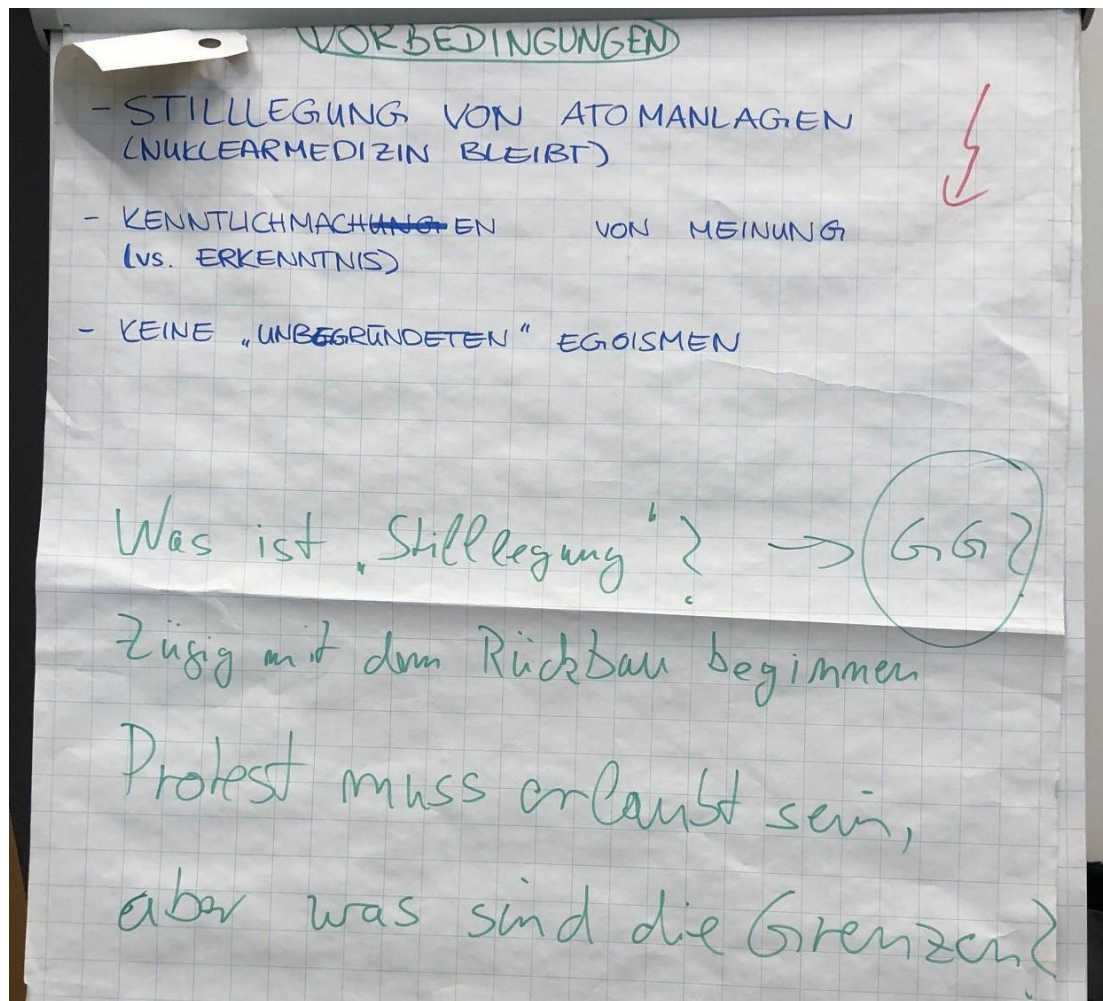 VORBEDINGUNGEN
- STILLLEGUNG VON ATOMANLAGEN
(NUKLEARMEDIZIN BLEIBT)
- KENNTLICHMACHEN VON MEINUNG
(vs. ERKENNTNIS)
- KEINE „UNBEGRÜNDETEN“ EGOISMEN
Was ist „Stilllegung“? → GG?
Zügig mit dem Rückbau beginnen
Protest muss erlaubt sein,
aber was sind die Grenzen?